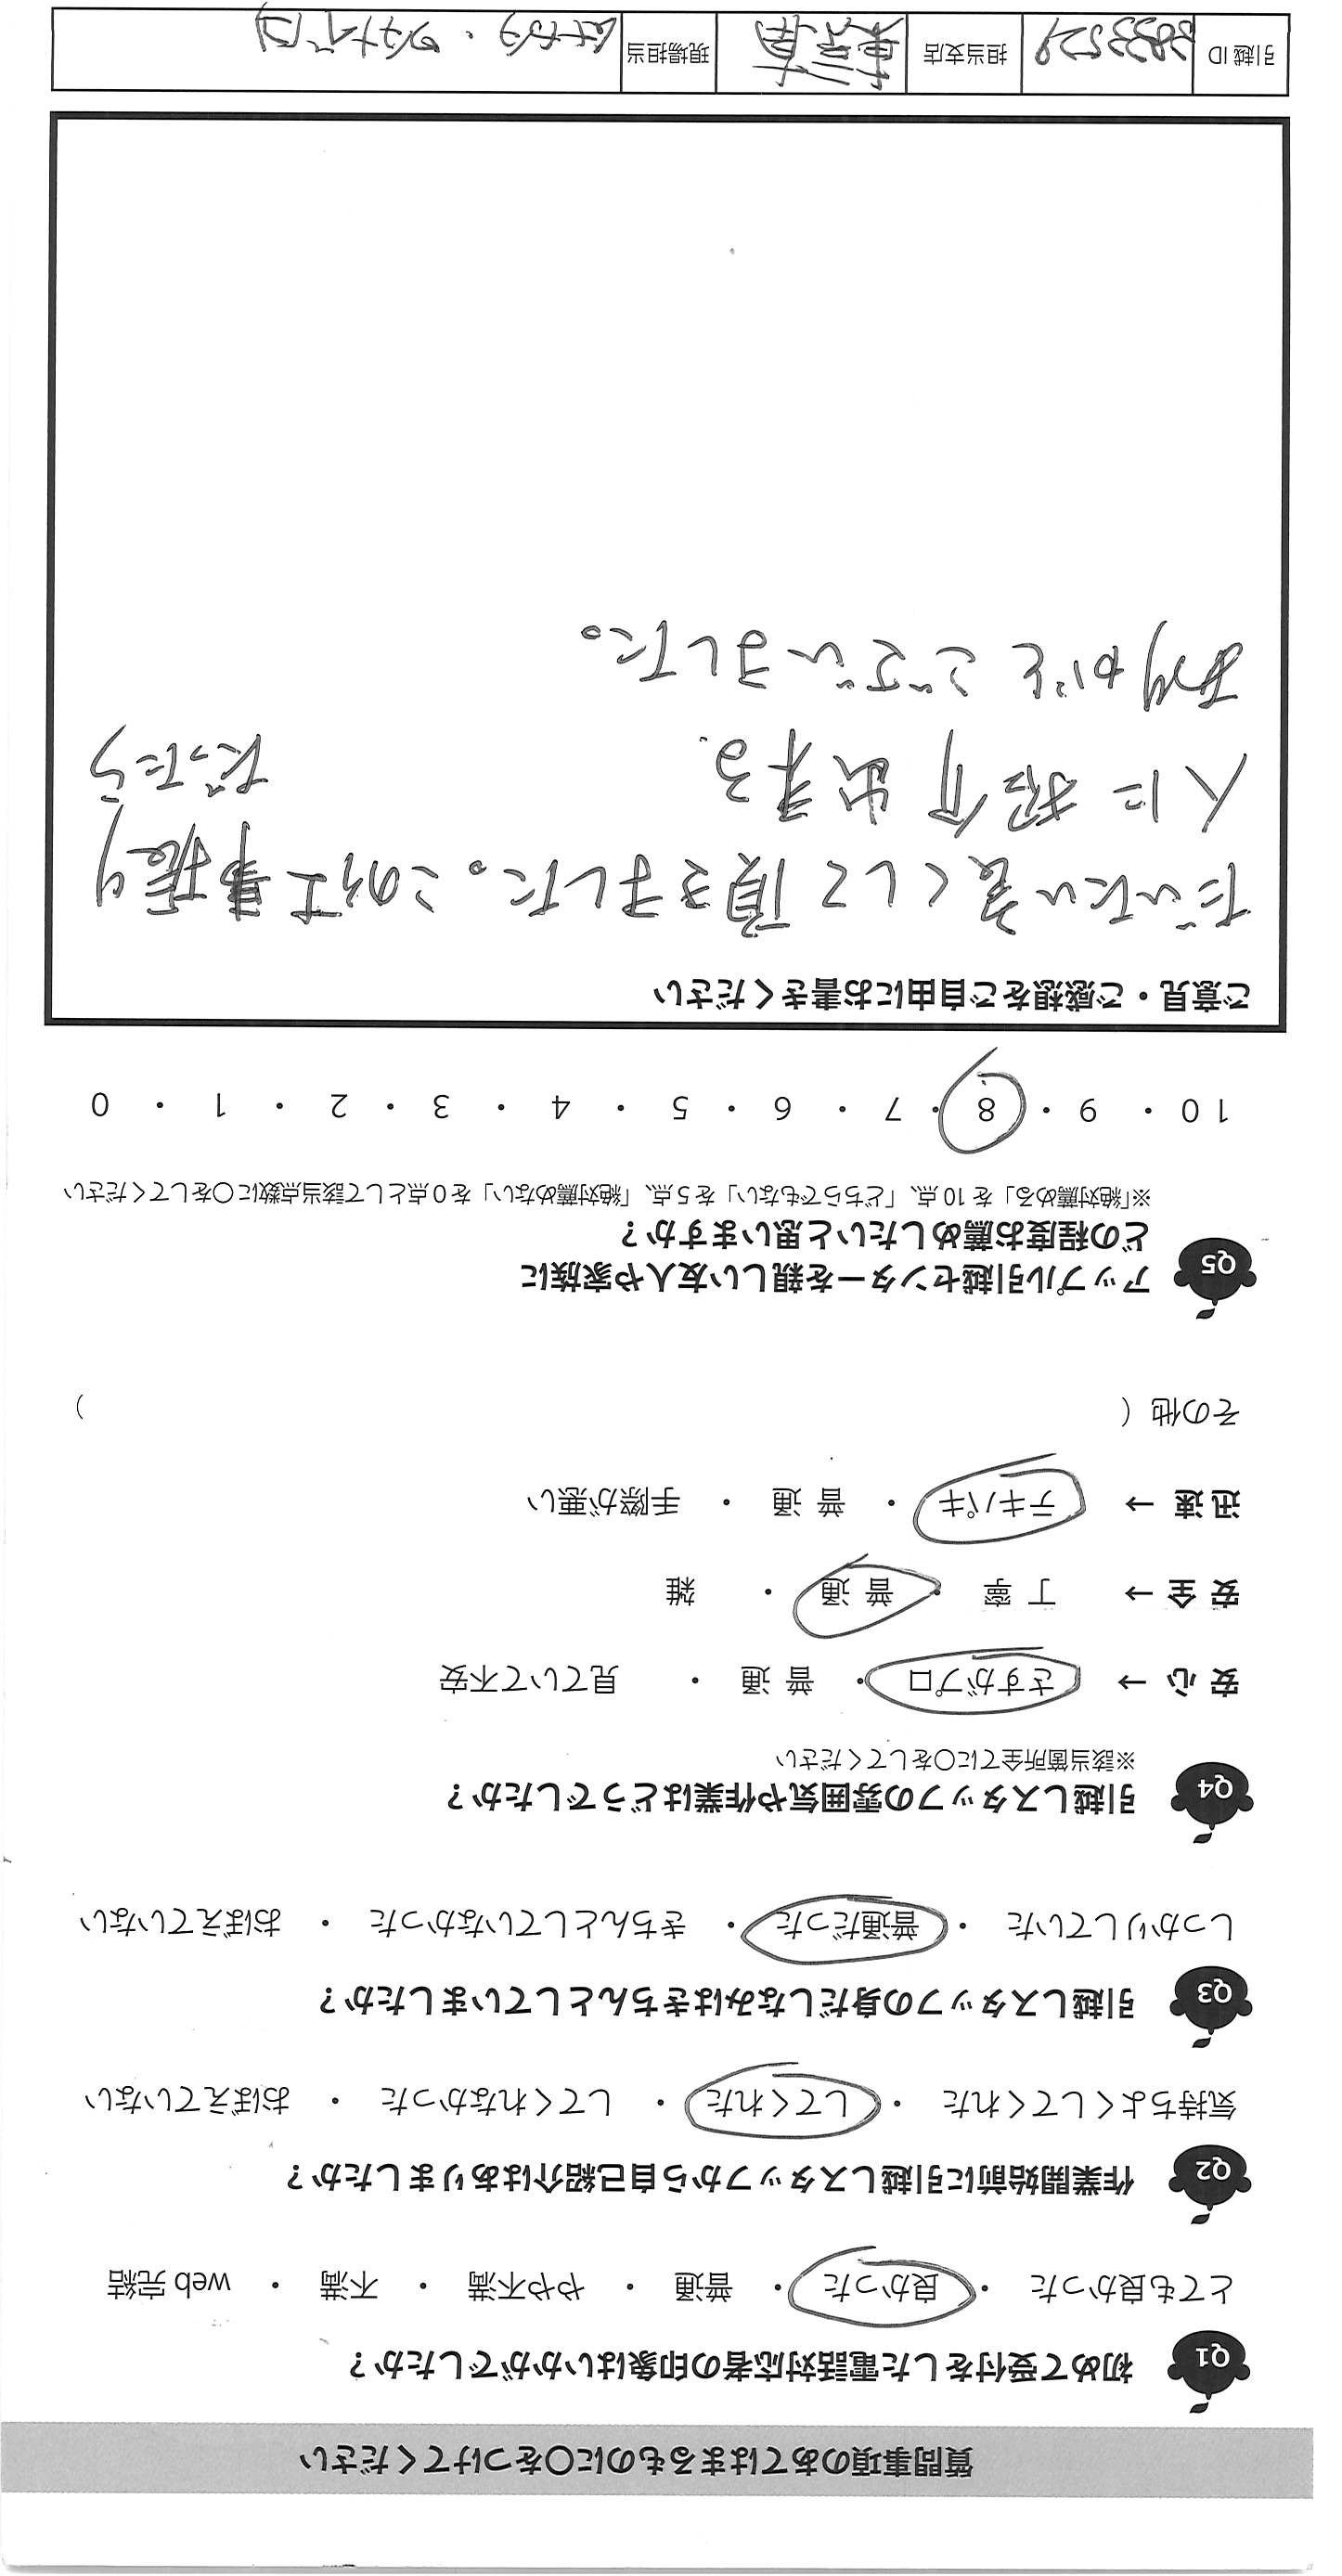 質問事項のあてはまるものに○をつけてください
Q1 初めて受付をした電話対応者の印象はいかがでしたか？
とても良かった ・ 良かった ・ 普通 ・ やや不満 ・ 不満 ・ web 完結
Q2 作業開始前に引越しスタッフから自己紹介はありましたか？
気持ちよくしてくれた ・ してくれた ・ してくれなかった ・ おぼえていない
Q3 引越しスタッフの身だしなみはきちんとしていましたか？
しっかりしていた ・ 普通だった ・ きちんとしていなかった ・ おぼえていない
Q4 引越しスタッフの雰囲気や作業はどうでしたか？
※該当箇所全てに○をしてください
安 心 → さすがプロ ・ 普 通 ・ 見ていて不安
安 全 → 丁 寧 ・ 普 通 ・ 雑
迅 速 → テキパキ ・ 普 通 ・ 手際が悪い
その他（ ）
Q5 アップル引越センターを親しい友人や家族に
どの程度お薦めしたいと思いますか？
※「絶対薦める」を 10 点、「どちらでもない」を 5 点、「絶対薦めない」を 0 点として該当点数に○をしてください
10 ・ 9 ・ 8 ・ 7 ・ 6 ・ 5 ・ 4 ・ 3 ・ 2 ・ 1 ・ 0
ご意見・ご感想をご自由にお書きください
だいたい良くして頂きました。この仕事振り
だったら
人に紹介出来る.
ありがとございました。
引越 ID 3833529 担当支店 東京南 現場担当